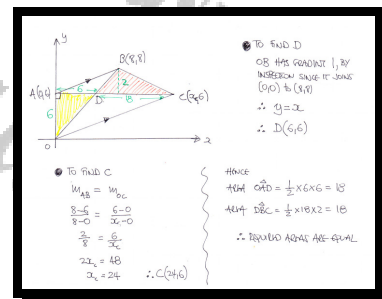 y
B(8,8)
A(0,6)
6
2
C(x,6)
D
18
6
O
x
TO FIND D
OB HAS GRADIENT 1, BY
INSPECTION SINCE IT JOINS
(0,0) to (8,8)
∴ y=x
∴ D(6,6)
TO FIND C
m_AB = m_OC
8-6/8-0 = 6-0/x_c-0
2/8 = 6/x_c
2x_c = 48
x_c = 24 ∴ C(24,6)
HENCE
AREA OÂD = 1/2 × 6 × 6 = 18
AREA DB̂C = 1/2 × 18 × 2 = 18
∴ REQUIRED AREAS ARE EQUAL